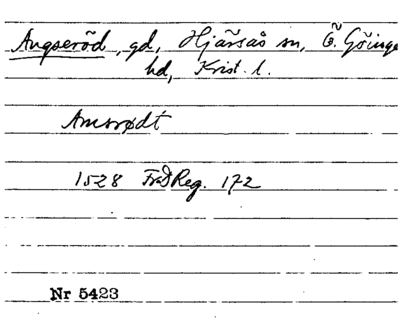 Angseröd, gd, Hjärsås sn, Ö. Göinge
hd, Krist. l.
Amsrødt
1528 FrDReg. 172
Nr 5423